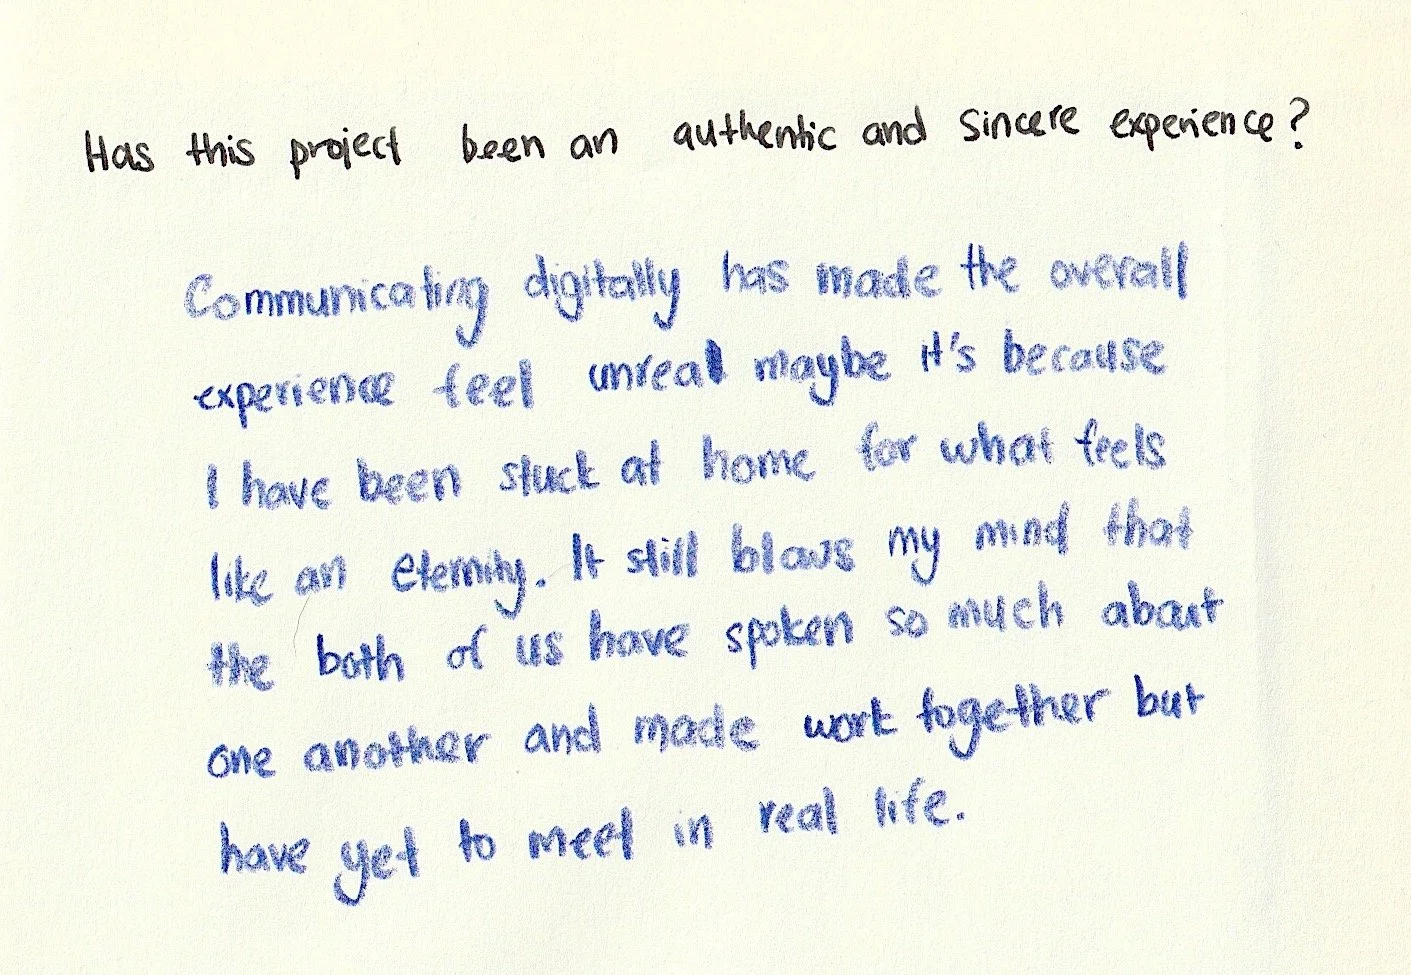 Has this project been an authentic and sincere experience?
Communicating digitally has made the overall
experience feel unreal maybe it's because
I have been stuck at home for what feels
like an eternity. It still blows my mind that
the both of us have spoken so much about
one another and made work together but
have yet to meet in real life.